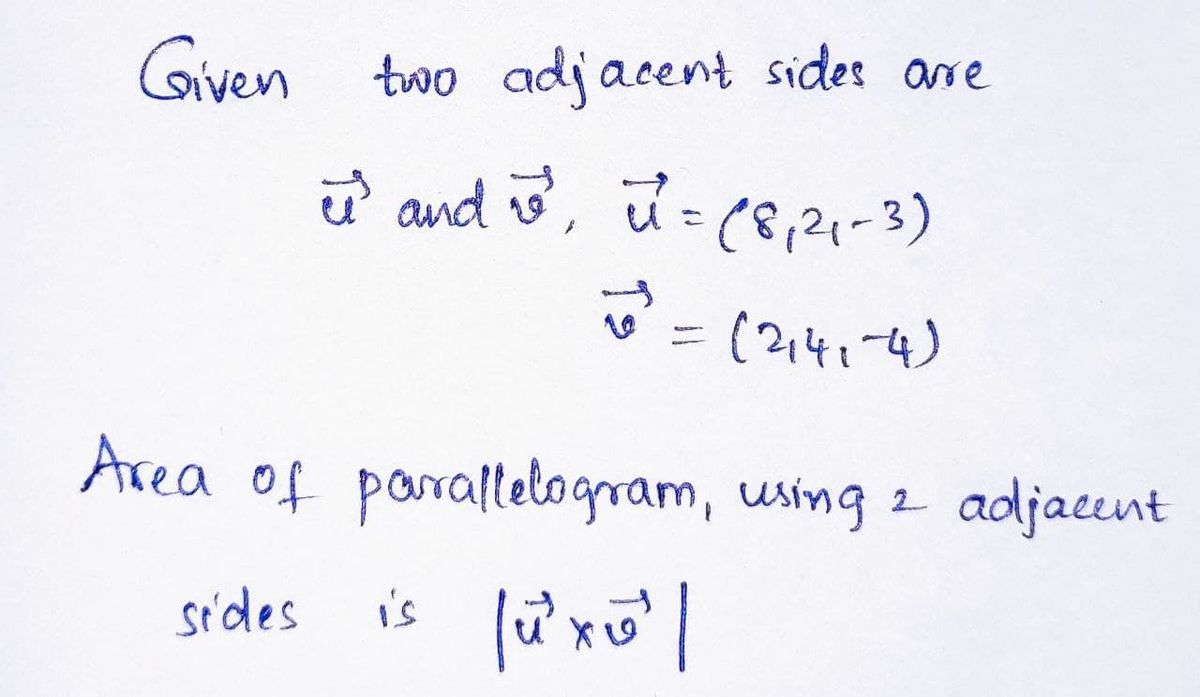 Given two adjacent sides are
u⃗ and v⃗, u⃗ = (8,2,-3)
v⃗ = (2,4,-4)
Area of parallelogram, using 2 adjacent
sides is |u⃗ × v⃗|